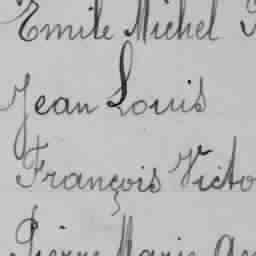 Emile Michel
Jean Louis
François Victo
Pierre Marie